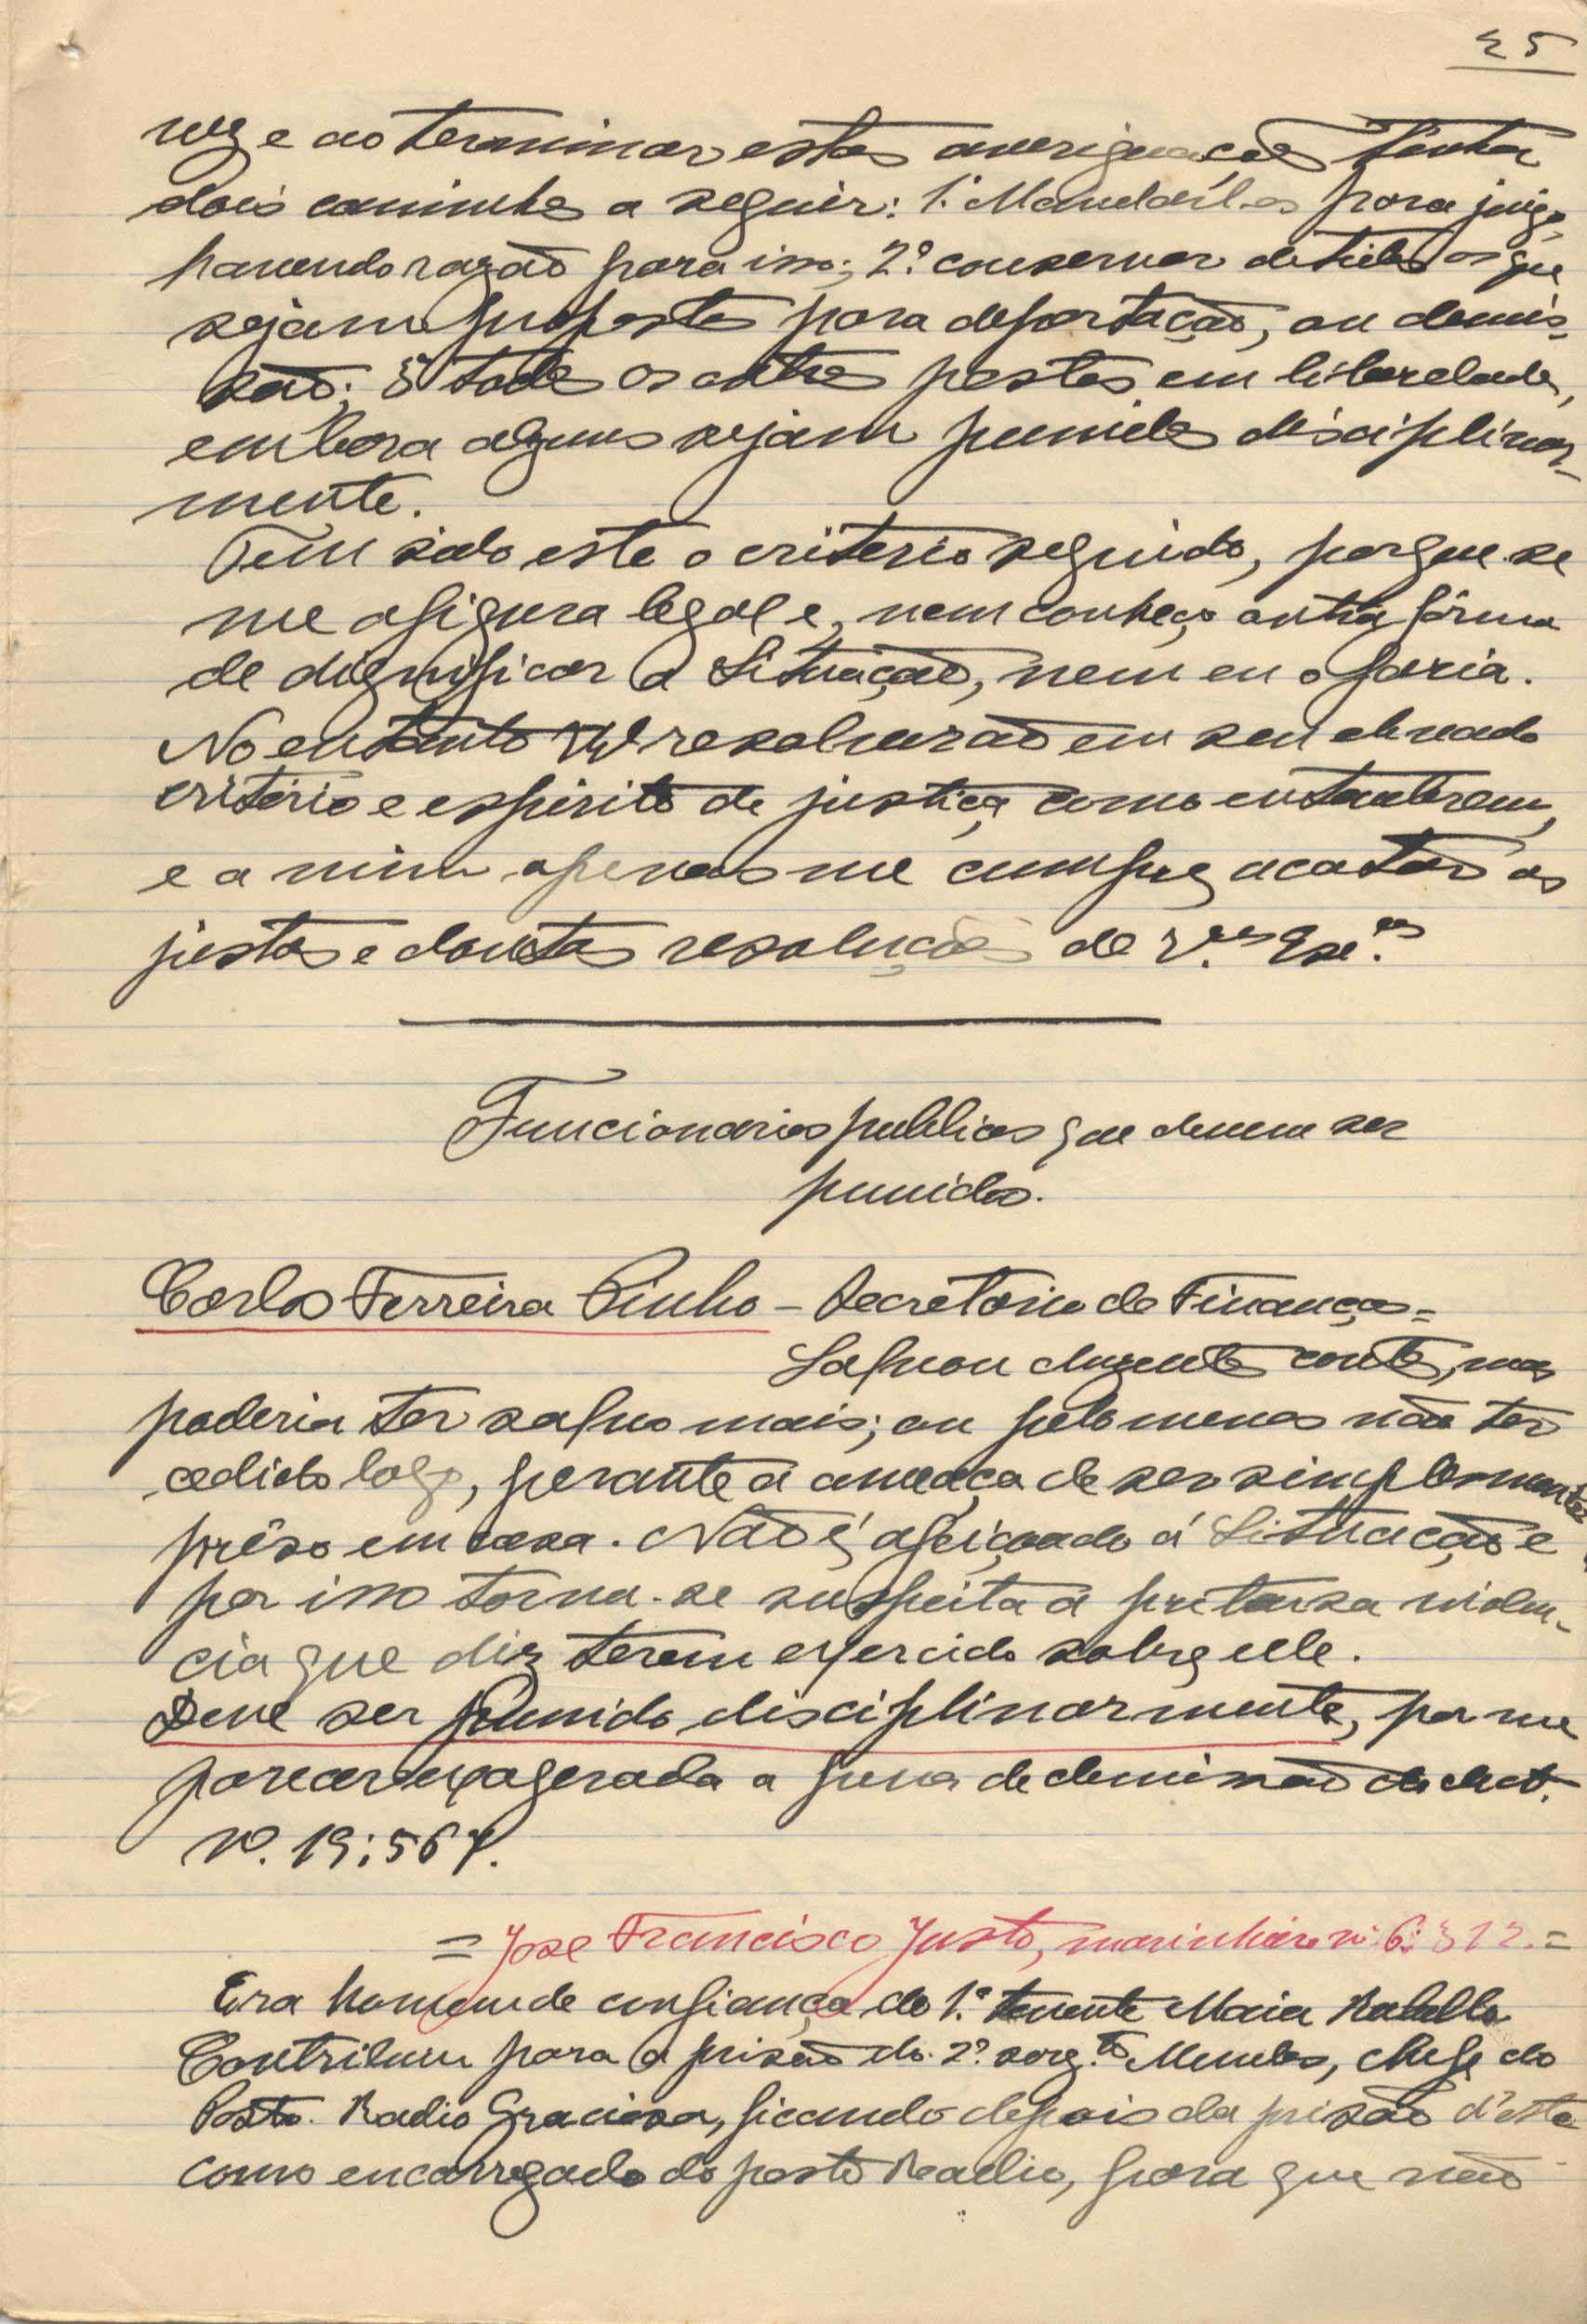 25
vez e ao terminar estas averiguações tinha
dois caminhos a seguir: 1.º Mandál-os para juizo,
havendo razão para isso; 2.º conservar detidos os que
sejam propostos para deportação, ou demis-
são; 3.º todos os outros postos em liberdade,
embora alguns sejam punidos disciplinar-
mente.
Tem sido este o criterio seguido, porque se
me afigura legal e, nem conheço outra fórma
de dignificar a Situação, nem eu o faria.
No entanto resolverão em seu elevado
critério e espirito de justiça como entenderem,
e a mim apenas me cumpre acatar as
justas e doutas resoluções de V.as Exc.as
Funcionarios publicos que devem ser
punidos.
Carlos Ferreira Pinho - Secretario de Finanças =
Safou duzentos contos, mas
poderia ter safo mais; ou pelo menos não ter
cedido logo, perante a ameaça de ser simplesmente
prêso em casa. Não é afeiçoado á Situação e
por isso torna-se suspeita a pretensa violen-
cia que diz terem exercido sobre elle.
Deve ser punido disciplinarmente, por me
parecer exagerada a pena de demissão do dect.
nº. 19:567.
= Jose Francisco Justo, marinheiro nº 6:312. =
Era homem de confiança do 1.º tenente Maia Rebello
Contribuiu para a prisão do 2.º sarg.to Mendes, chefe do
Posto Radio Graciosa, ficando depois da prisão d'este
como encarregado do posto Radio, para que não